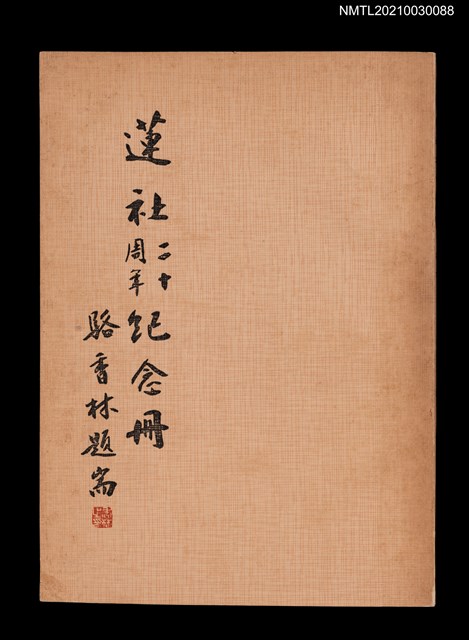 NMTL20210030088
蓮社二十周年紀念冊
駱香林題耑